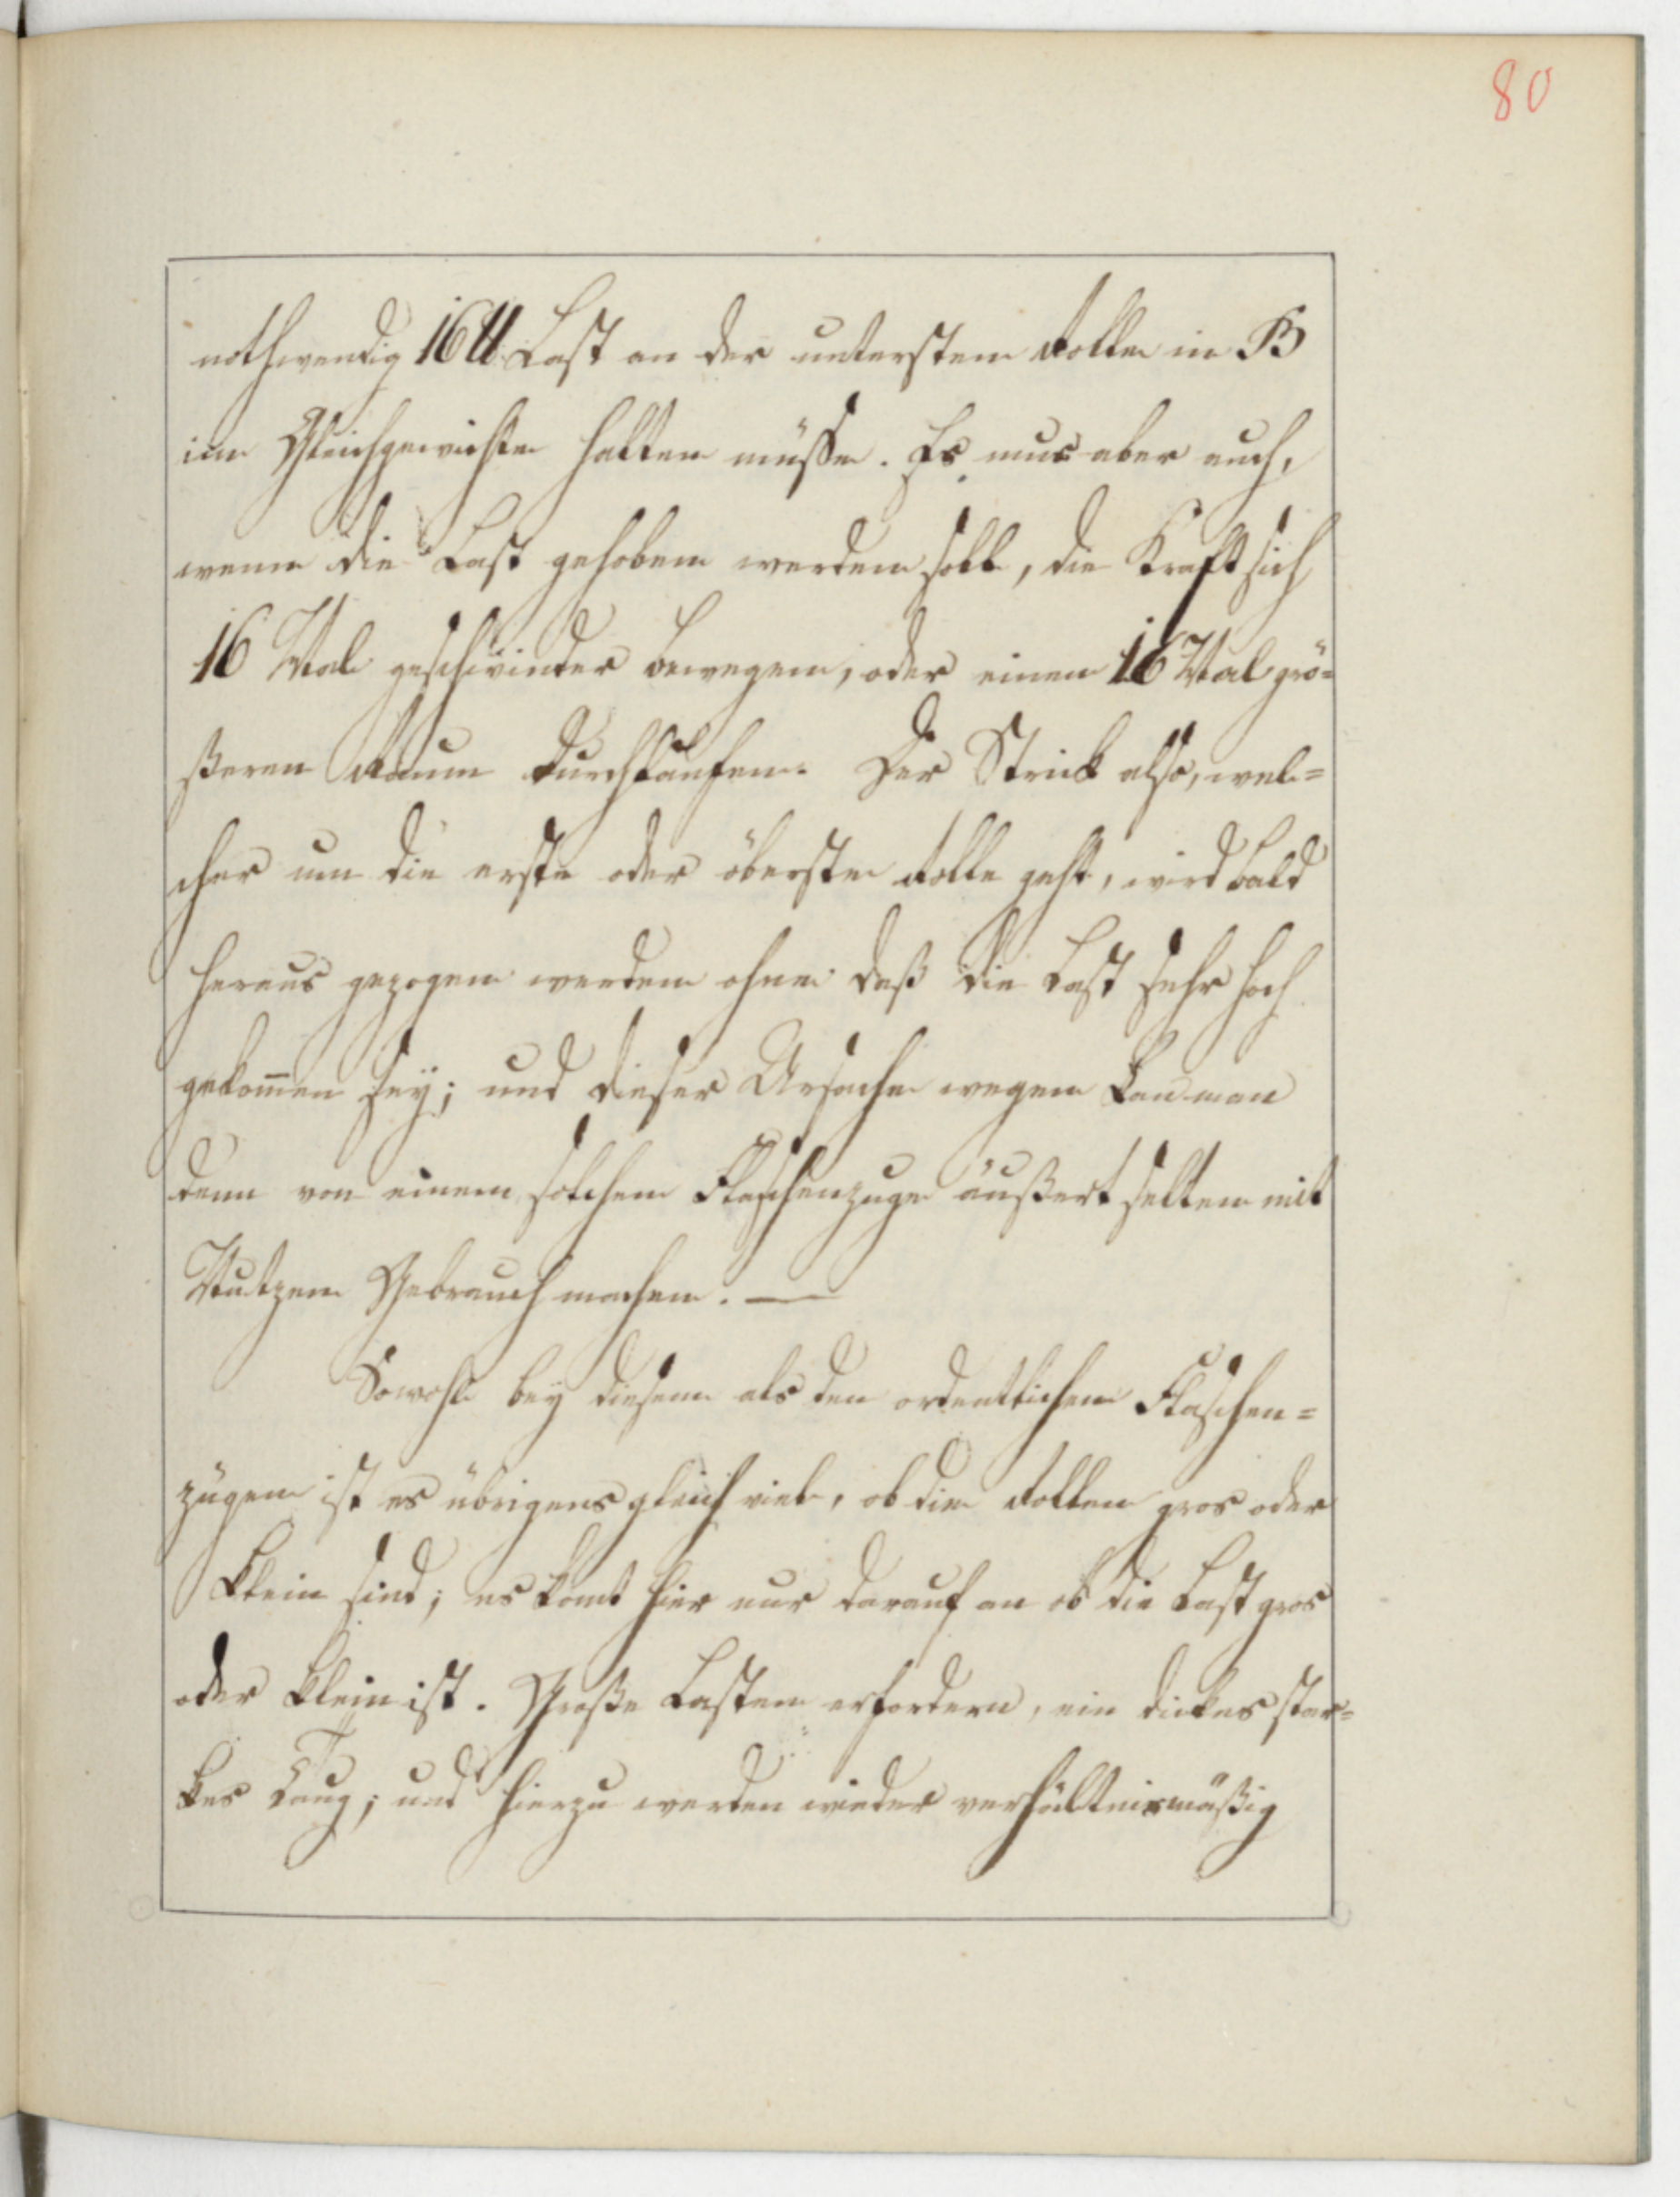 80
nothwendig 16 ℔ Last an der untersten Rolle in B
im Gleichgewichte halten müsse. Es mus aber auch,
wenn die Last gehoben werden soll, die Kraft sich
16 Mal geschwinder bewegen, oder einen 16 Mal grö=
ßeren Raum durchlaufen. Der Strick also, wel=
cher um die erste oder öberste Rolle geht, wird bald
heraus gezogen werden ohne daß die Last sehr hoch
gekom̄en seÿ; und dieser Ursache wegen kan man
denn von einem solchen Flaschenzuge äußert selten mit
Nutzen Gebrauch machen. —
Sowohl beÿ diesem als den ordentlichen Flaschen=
zügen ist es übrigens gleich viel, ob die Rollen gros oder
klein sind; es komt hier nur darauf an ob die Last gros
oder klein ist. Große Lasten erfordern, ein dickes star=
kes Taug; und hierzu werden wieder verhältnismäßig